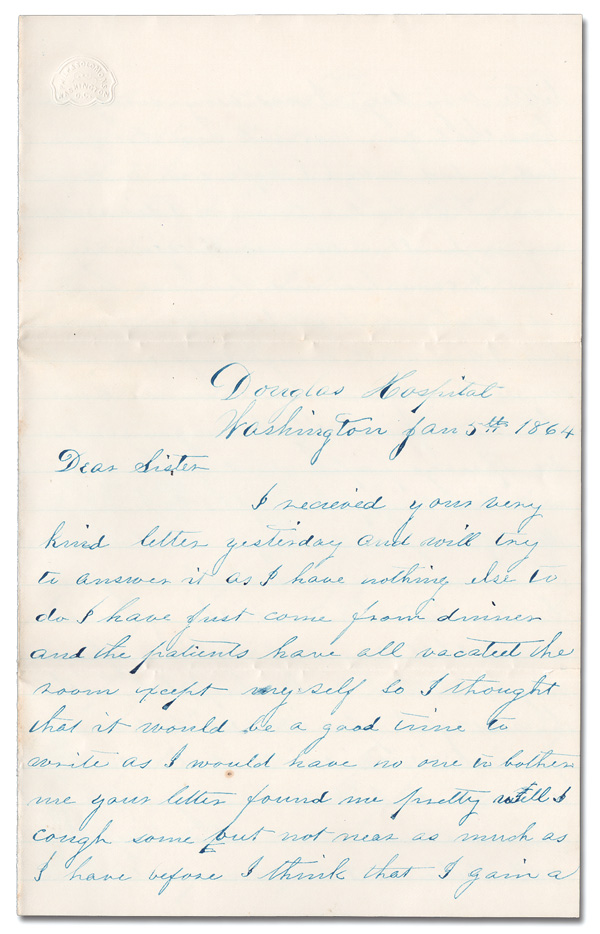 CAPITOL
WASHINGTON
Douglas Hospital
Washington Jan 5th 1864
Dear Sister
I recieved your very
kind letter yesterday and will try
to answer it as I have nothing else to
do I have just come from dinner
and the patients have all vacated the
room except myself so I thought
that it would be a good time to
write as I would have no one to bother
me your letter found me pretty well I
cough some but not near as much as
I have before I think that I gain a